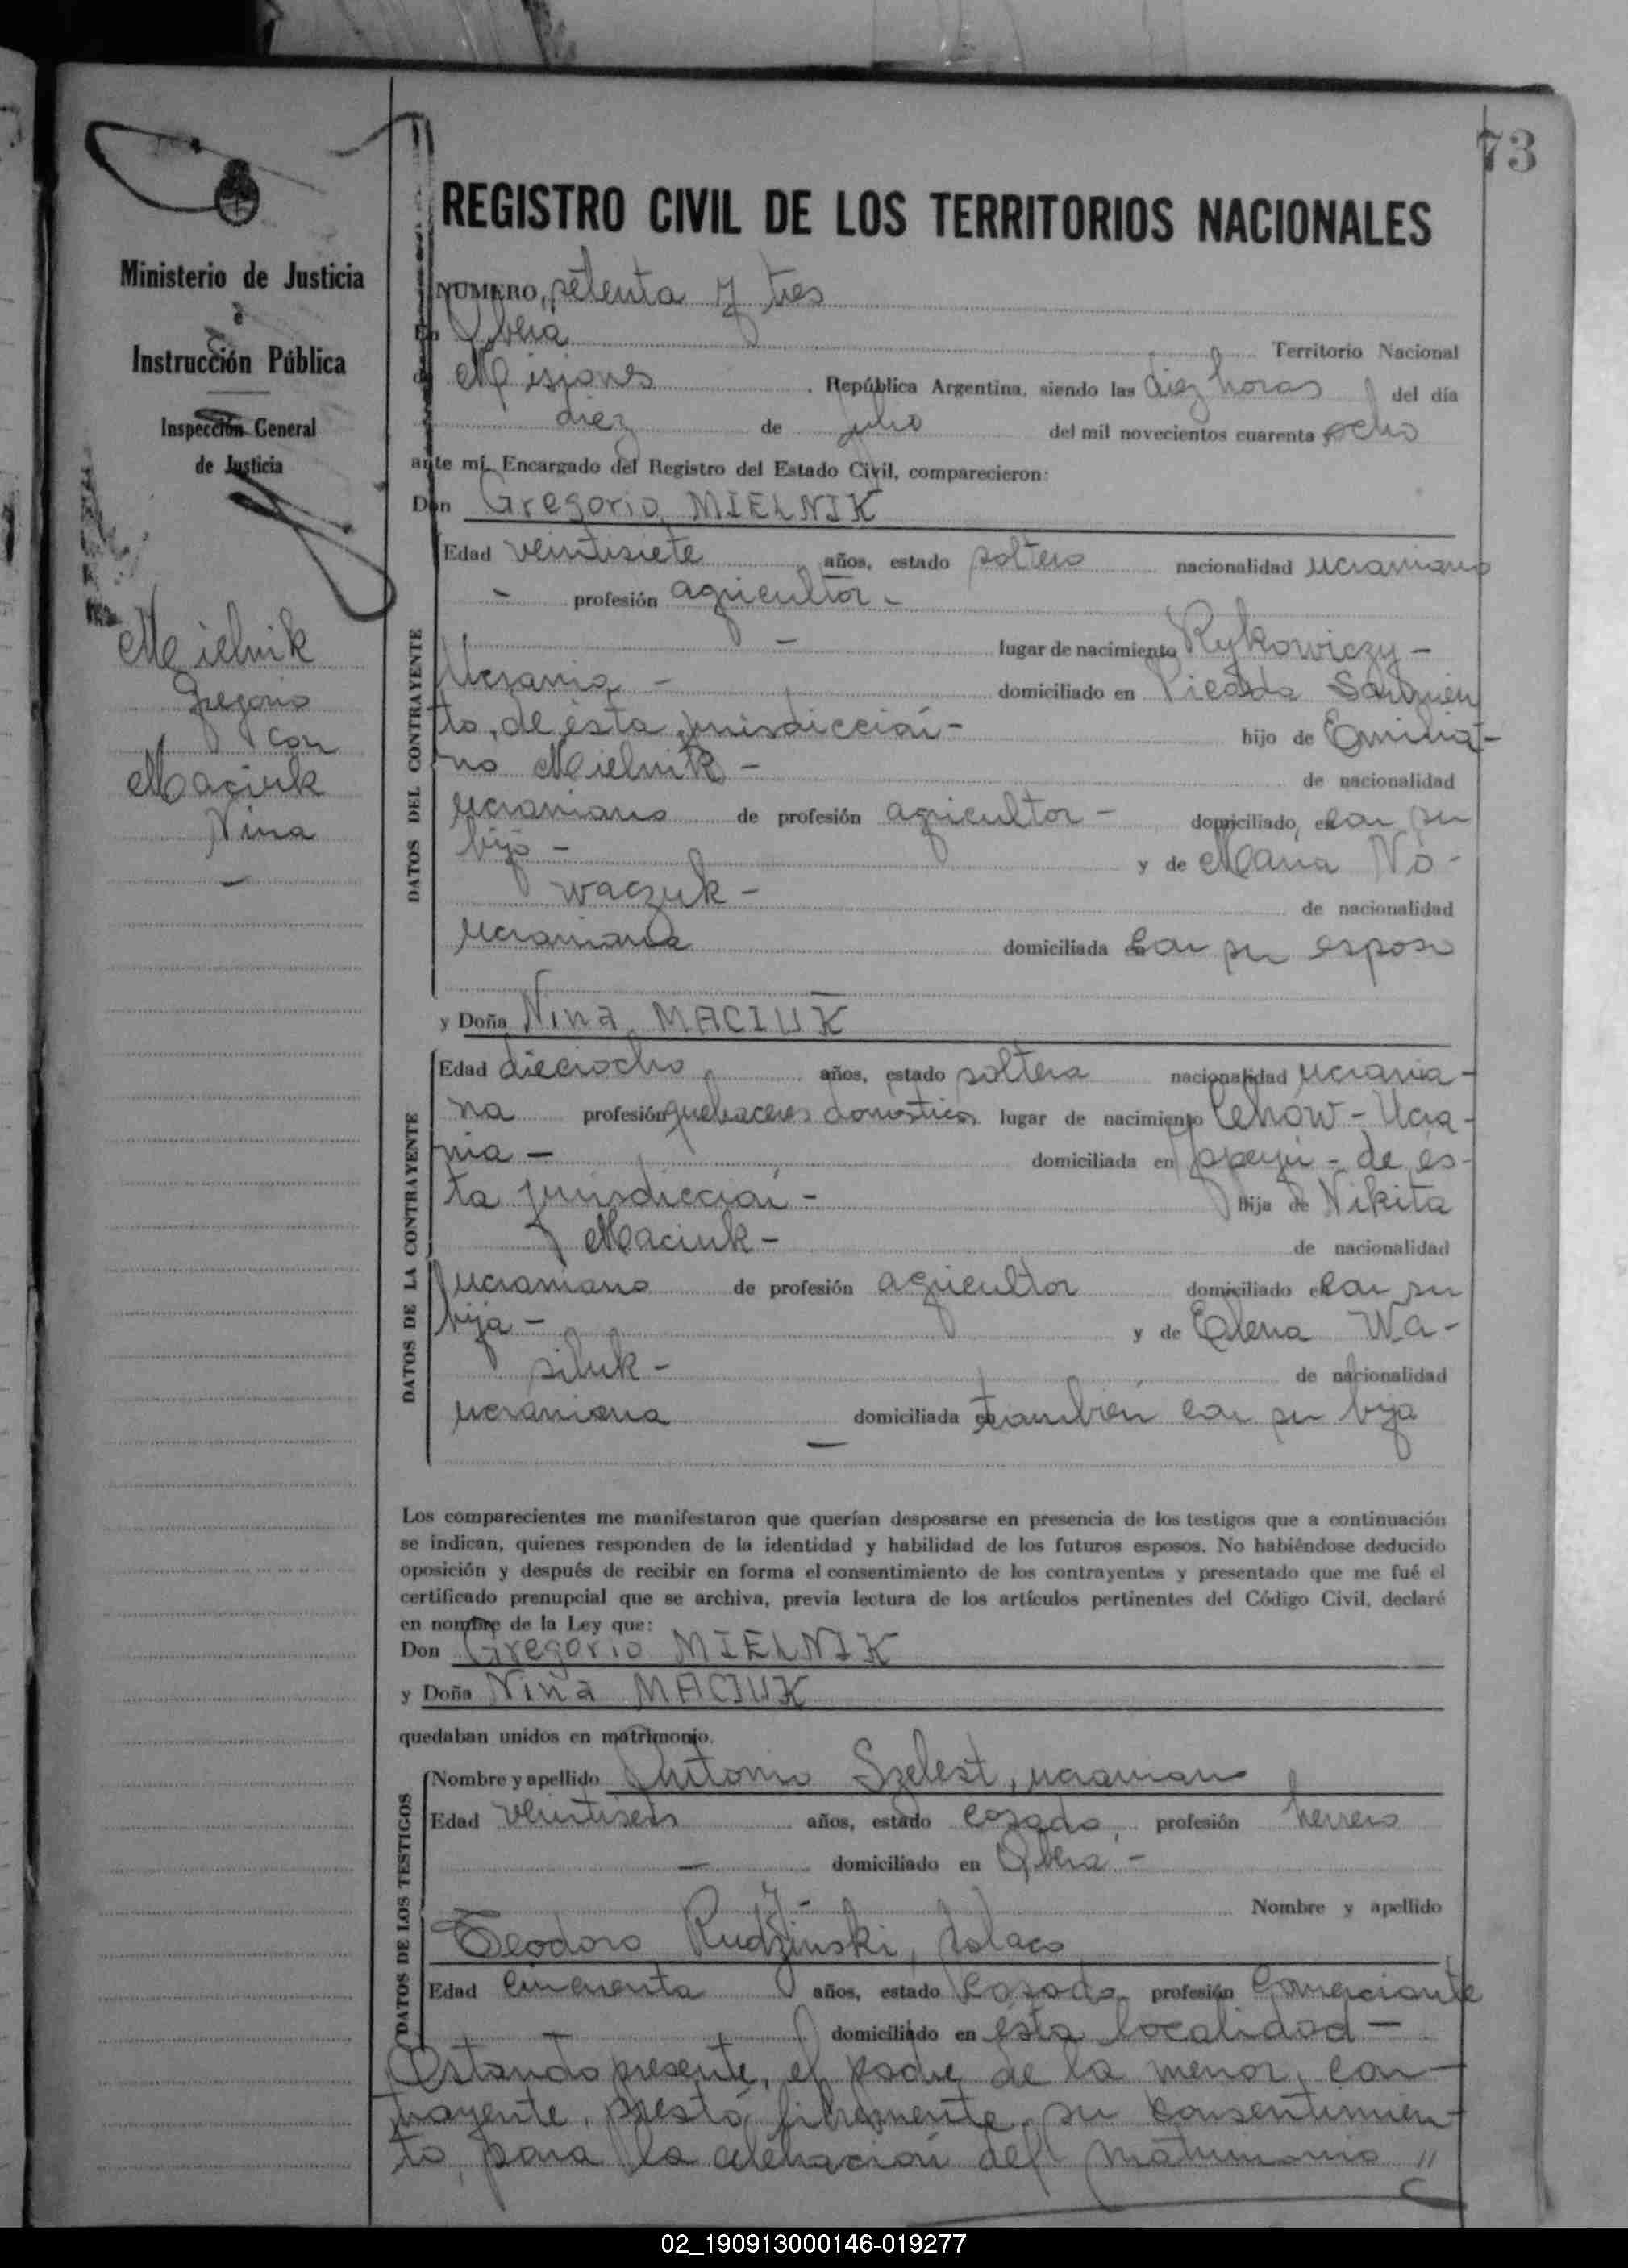 73
Ministerio de Justicia
é
Instrucción Pública
Inspección General
de Justicia
Mielnik
Gregorio
con
Maciuk
Nina
REGISTRO CIVIL DE LOS TERRITORIOS NACIONALES
NUMERO, setenta y tres
En Obera Territorio Nacional
de Misiones, República Argentina, siendo las diez horas del día
diez de julio del mil novecientos cuarenta ocho
ante mí, Encargado del Registro del Estado Civil, comparecieron:
Don Gregorio MIELNIK
DATOS DEL CONTRAYENTE
Edad veintisiete años, estado soltero nacionalidad ucraniano
- profesión agricultor -
- lugar de nacimiento Rykowiczy -
Ucrania - domiciliado en Picada Sarmien
to, de ésta jurisdicción - hijo de Emilia-
no Mielnik - de nacionalidad
ucraniano de profesión agricultor - domiciliado en con su
hijo - y de María No-
waczuk - de nacionalidad
ucraniana domiciliada en con su esposo
-
y Doña Nina MACIUK
DATOS DE LA CONTRAYENTE
Edad dieciocho años, estado soltera nacionalidad ucrania-
na profesión quehaceres domésticos lugar de nacimiento Cehów - Ucra-
nia - domiciliada en Yapeyú - de és-
ta jurisdicción - hija de Nikita
Maciuk - de nacionalidad
ucraniano de profesión agricultor domiciliado en con su
hija - y de Elena Wa-
siluk - de nacionalidad
ucraniana domiciliada en también con su hija
-
Los comparecientes me manifestaron que querían desposarse en presencia de los testigos que a continuación
se indican, quienes responden de la identidad y habilidad de los futuros esposos. No habiéndose deducido
oposición y después de recibir en forma el consentimiento de los contrayentes y presentado que me fué el
certificado prenupcial que se archiva, previa lectura de los artículos pertinentes del Código Civil, declaré
en nombre de la Ley que:
Don Gregorio MIELNIK
y Doña Nina MACIUK
quedaban unidos en matrimonio.
DATOS DE LOS TESTIGOS
Nombre y apellido Antonio Szelest, ucraniano
Edad veintiseis años, estado casado, profesión herrero
- domiciliado en Obera -
- Nombre y apellido
Teodoro Rudzinski, polaco
Edad cincuenta años, estado casado profesión comerciante
- domiciliado en ésta localidad -
Estando presente, el padre de la menor, con-
trayente, prestó libremente su consentimien-
to, para la celebración del matrimonio "
02_190913000146-019277